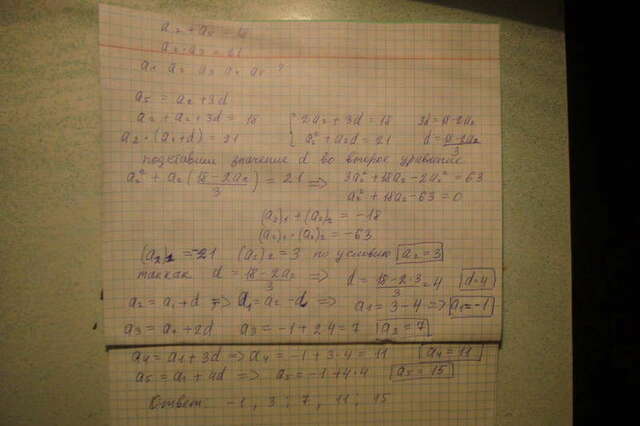 a₂ · a₃ = 21
a₁ a₂ a₃ a₄ a₅ ?
a₅ = a₂ + 3d
a₂ + a₂ + 3d = 18 { 2a₂ + 3d = 18 3d = 18 - 2a₂
a₂ · (a₂ + d) = 21 a₂² + a₂d = 21 d = (18 - 2a₂)/3
подставим значение d во второе уравнение
a₂² + a₂ ((18 - 2a₂)/3) = 21 => 3a₂² + 18a₂ - 2a₂² = 63
a₂² + 18a₂ - 63 = 0
(a₂)₁ + (a₂)₂ = -18
(a₂)₁ · (a₂)₂ = -63
(a₂)₁ = -21 (a₂)₂ = 3 по условию a₂ = 3
так как d = (18 - 2a₂)/3 => d = (18 - 2·3)/3 = 4 d = 4
a₂ = a₁ + d => a₁ = a₂ - d => a₁ = 3 - 4 => a₁ = -1
a₃ = a₁ + 2d a₃ = -1 + 2·4 = 7 a₃ = 7
a₄ = a₁ + 3d => a₄ = -1 + 3·4 = 11 a₄ = 11
a₅ = a₁ + 4d => a₅ = -1 + 4·4 a₅ = 15
Ответ -1 , 3 ; 7 , 11 ; 15